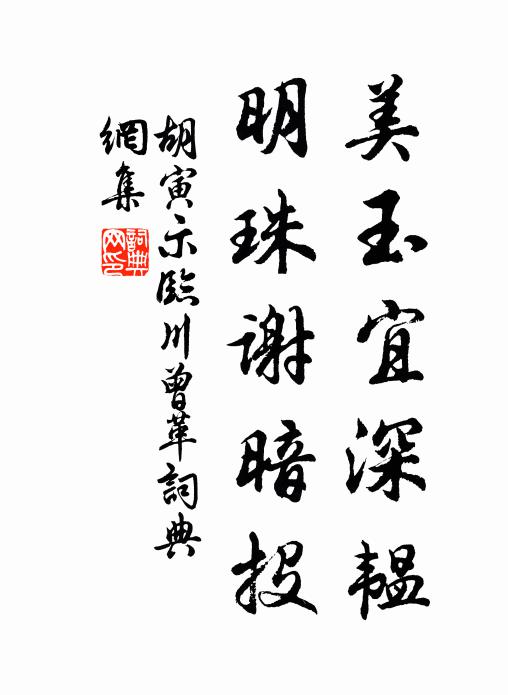 美玉宜深韞
明珠謝暗投
胡寅示臨川曾革詞典
網集
詞典網印